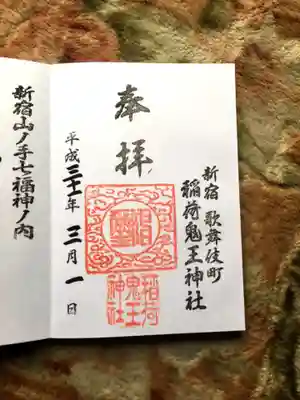 新宿 歌舞伎町
稲荷鬼王神社
奉拝
平成三十一年三月一日
稲荷
鬼王
神社
新宿山ノ手七福神ノ内